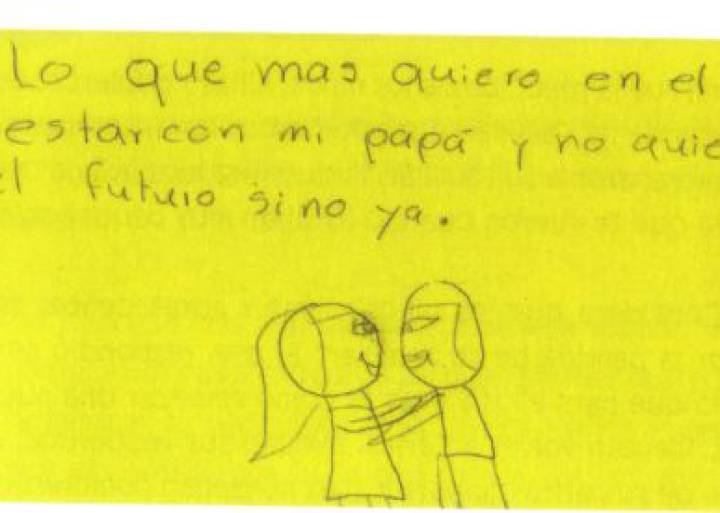 Lo que mas quiero en el
estar con mi papá y no quie
el futuro sino ya.